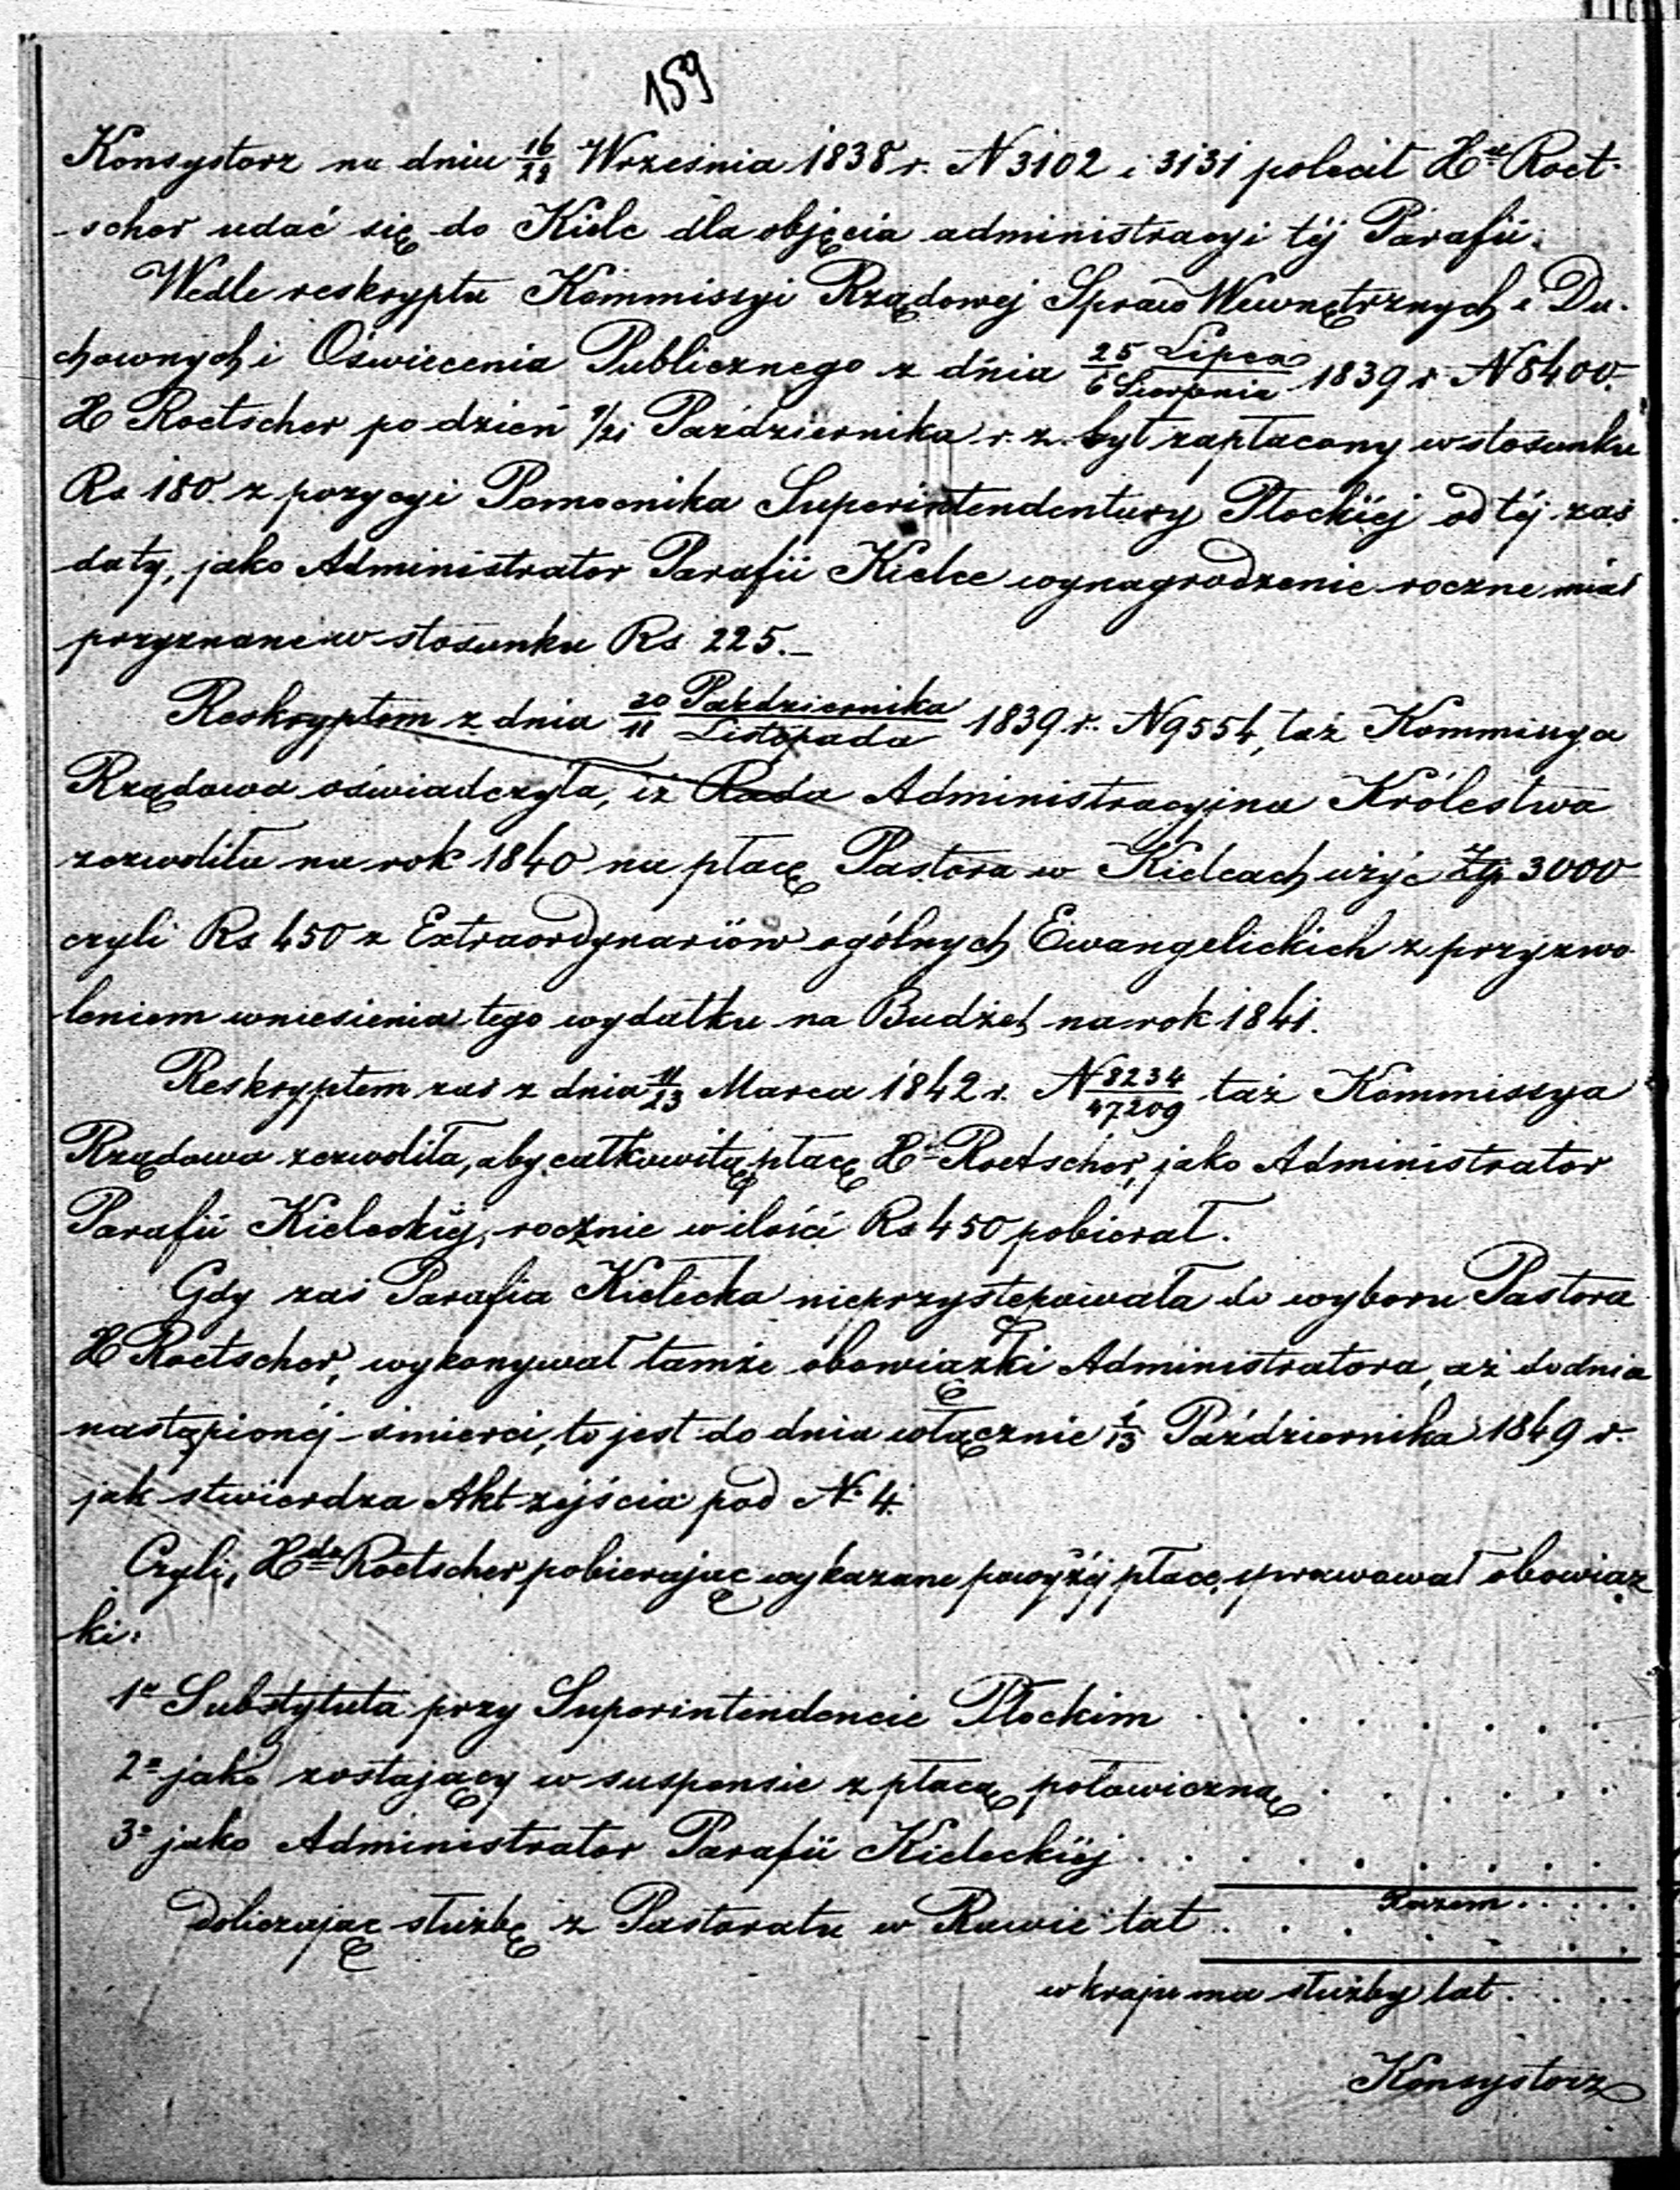 159
Konsystorz na dniu 16/28 Września 1838 r. N 3102 i 3131 polecił X<sup>dz</sup> Roet-
-scher udać się do Kielc dla objęcia administracyi téj Parafii.
Wedle reskryptu Kommissyi Rządowej Spraw Wewnętrznych i Du-
chownych i Oświecenia Publicznego z dnia 25 Lipca/6 Sierpnia 1839 r. N 8400.
X Roetscher po dzień 9/21 Października r. z. był zapłacony w stosunku
Rs 180 z pozycyi Pomocnika Superintendentury Płockiéj od téj zaś
daty, jako Administrator Parafii Kielce wynagrodzenie roczne miał
przyznane w stosunku Rs 225.—
Reskryptem z dnia 30 Października/11 Listopada 1839 r. N 9554, taż Kommissya
Rządowa oświadczyła, iż Rada Administracyjna Królestwa
zezwoliła na rok 1840 na płacę Pastora w Kielcach użyć Złp 3000
czyli Rs 450 z Extraordynariów ogólnych Ewangelickich z przyzwo-
leniem wniesienia tego wydatku na Budżet na rok 1841.
Reskryptem zaś z dnia 11/23 Marca 1842 r. N 8234/47209 taż Kommissya
Rządowa zezwoliła, aby całkowitą płacę X Roetscher, jako Administrator
Parafii Kieleckiéj, rocznie w ilości Rs 450 pobierał.
Gdy zaś Parafia Kielecka nieprzystępowała do wyboru Pastora
X Roetscher, wykonywał tamże obowiązki Administratora, aż do dnia
nastąpionéj śmierci, to jest do dnia włącznie 1/13 Października 1849 r.
jak stwierdza Akt zejścia pod N: 4.
Czyli, X<sup>dz</sup> Roetscher pobierając wykazane powyżéj płace, sprawował obowiąz
ki:
1º Substytuta przy Superintendencie Płockim . . . . . . .
2º jako zostający w suspensie z płacą połowiczną . . . . . .
3º jako Administrator Parafii Kieleckiéj . . . . . . . . .
Razem . . . . .
Doliczając służbę z Pastoratu w Rawie lat . . . . . .
w kraju ma służby lat . . . .
Konsystorz